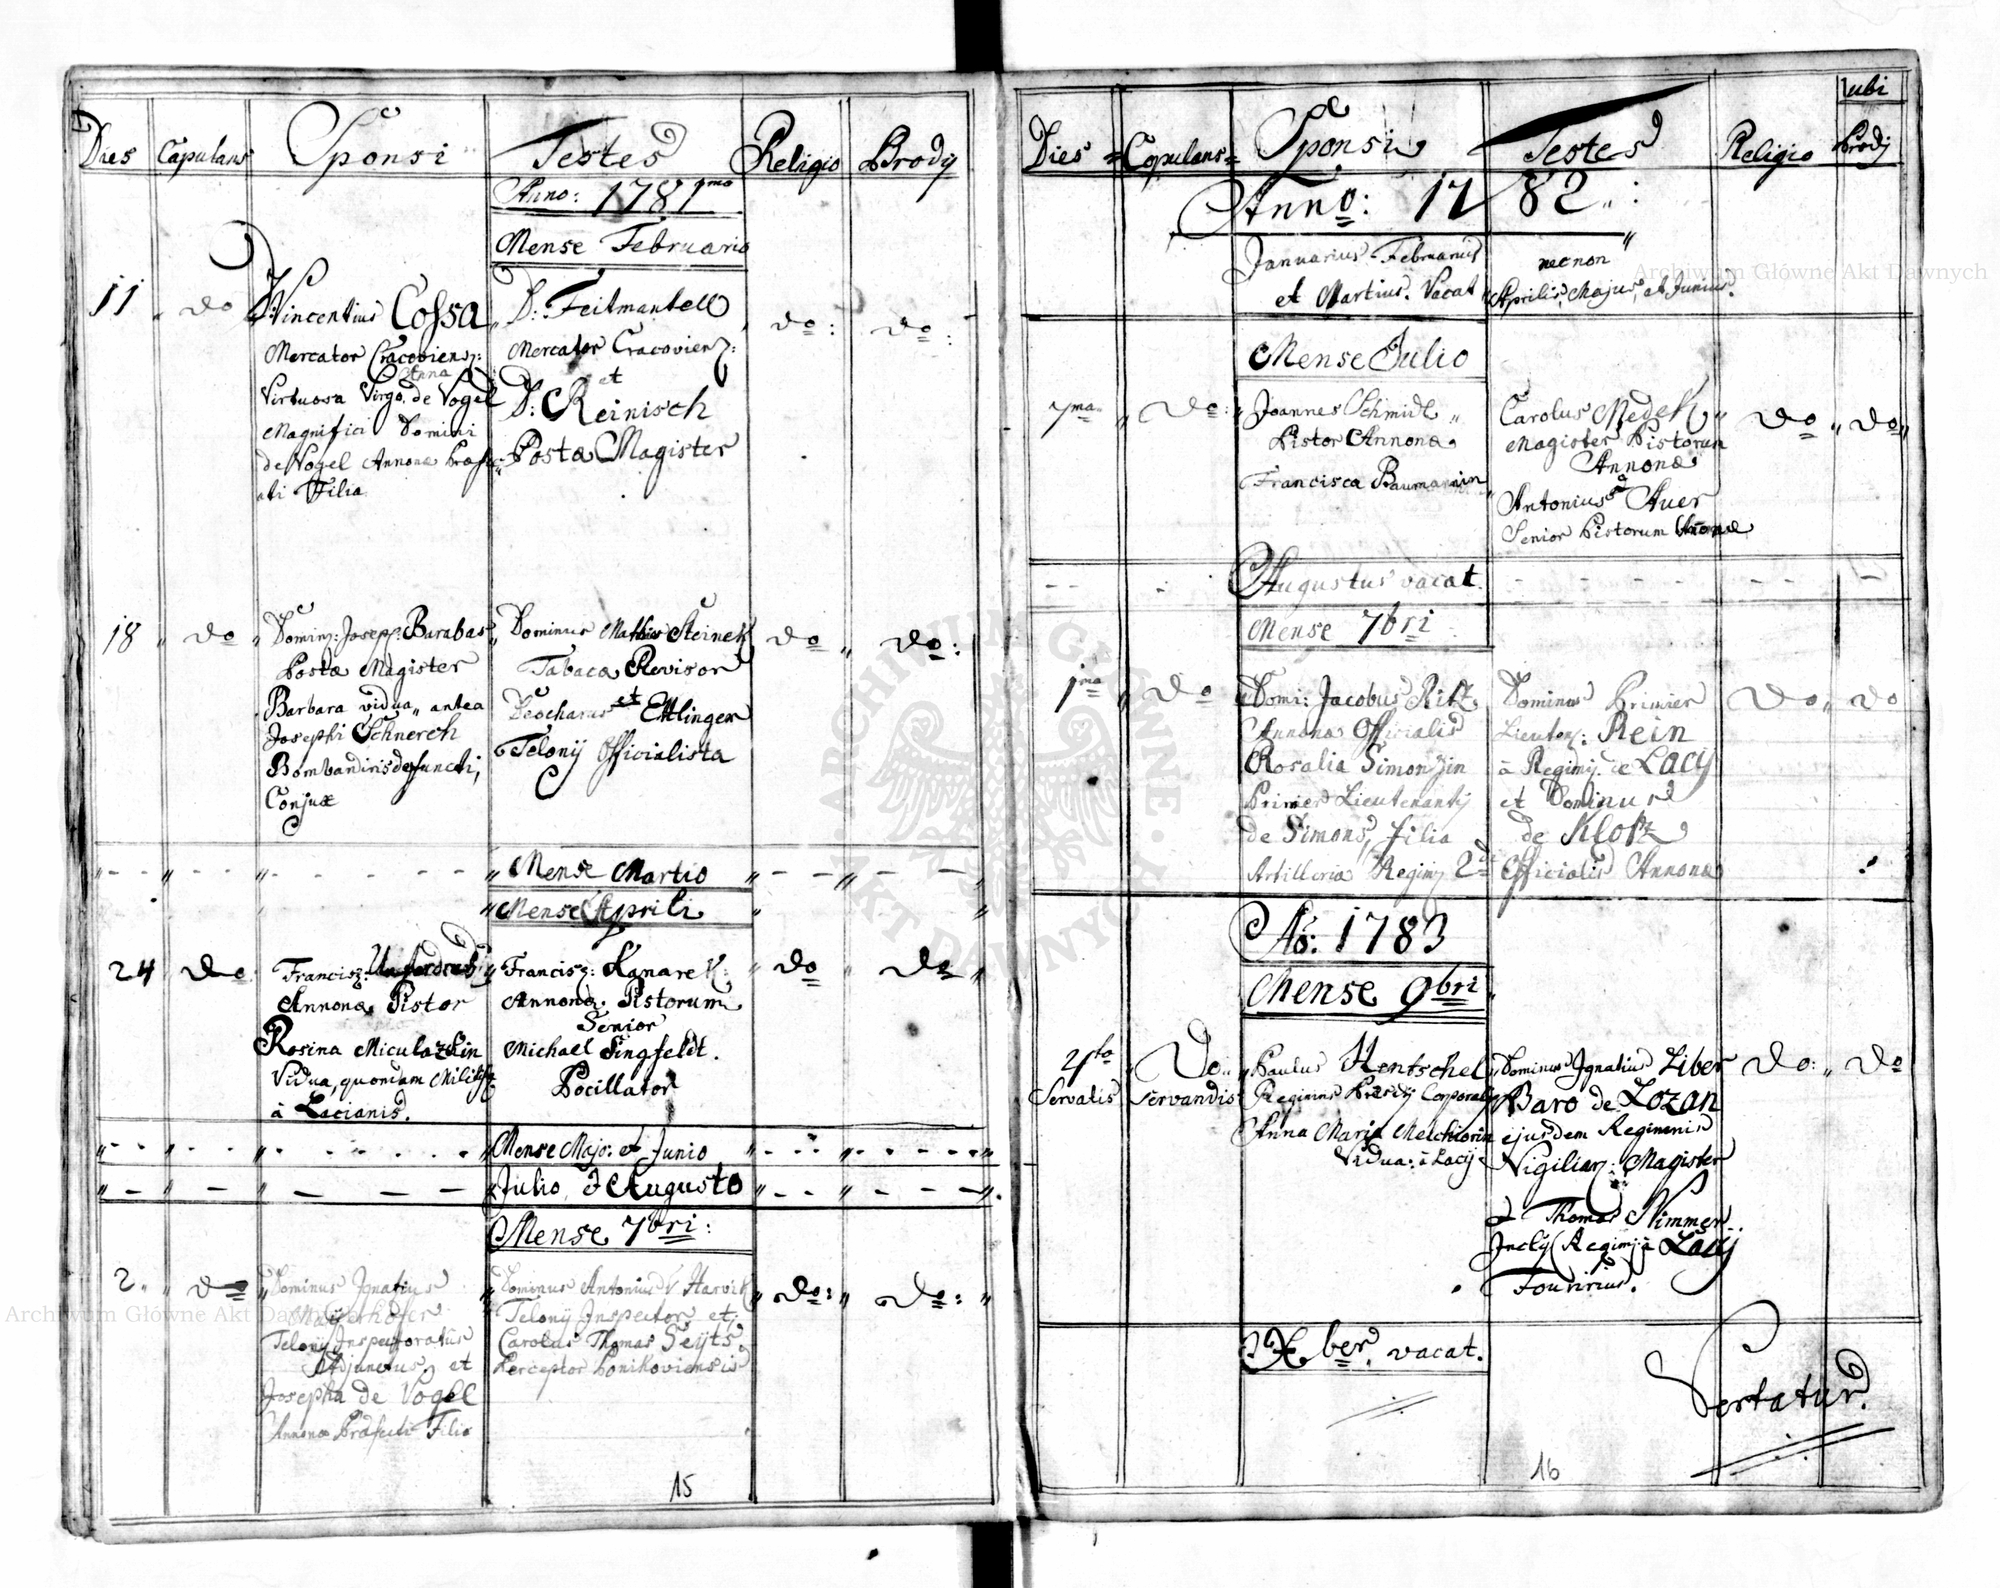 Dies Capulans Sponsi Testes Religio Brody
Anno: 1781mo
Mense Februario
11 " do Vincentius Cossa
Mercator Cracovienz:
Anna
Virtuosa Virgo, de Vogel
Magnifici Domini
de Vogel Annonæ Præfe-
cti Filia
D: Feitmantell
Mercator Cracovienz:
et
D: Reinisch
Postæ Magister
do: do:
18 " do " Dominz: Joseph: Barabas
Postæ Magister
Barbara vidua " antea
Josephi Schnerch
Bombardiris defuncti,
Conjux
Dominus Mathias Steinek
Tabacæ Revisor
et
Deocharus Ettlinger
Telonij Officialista
do " do:
Mense Martio
Mense Aprili
24 do Francisz:
Annonæ Pistor
Rosina Miculazkin
Vidua, quondam Militis
à Lacianis.
Francisz: Kanarek:
Annonæ Pistorum
Senior
Michael Singfeldt.
Pocillator
do do
Mense Majo: et Junio
Julio, & Augusto
Mense 7bri:
2 " do " Dominus Ignatius
Mayerhofer
Telonij Inspectoratûs
Adjunctus et
Josepha de Vogel
Annonæ Præfecti Filia
" Dominus Antonius Harvik
Telonij Inspector et
Carolus Thomas Seyts
Perceptor Ponikoviensis
" do: " do: "
15
Dies Copulans Sponsi Testes Religio ubi Brody
Anno: 1782
Januarius Februarius necnon
et Martius. Vacat Aprilis, Majus, et Junius.
Mense Julio
7ma " do: " Joannes Schmidt "
Pistor Annonæ
Francisca Baumannin
Carolus Medek
Magister Pistorum
Annonæ
Antonius Auer
Senior Pistorum Anonæ
do " do "
Augustus vacat.
Mense 7bri
1ma " do Domi: Jacobus Ritz
Annonæ Officialis
Rosalia Simonzin
Primier Lieutenantij
de Simons, filia
Artilleria Regimz 2di
Dominus Primier
Lieutenz: Rein
à Regimz. de Lacy
et Dominus
de Klotz
Officialis Annonæ
do " do
Ao: 1783
Mense 9bri
4to Do: " Paulus Hentschel
Servatis Servandis Regimins Præsidij Corporalis
Anna Maria Melchiorin
Vidua: à Lacij
Dominus Ignatius Liber
Baro de Lozan
ejusdem Regiminis
Vigiliarz: Magister
& Thomas Nimmer
Incly: Regimz: à Lacij
Fouririus.
do: " do
Xber. vacat.
Vertatur.
16
Archiwum Główne Akt Dawnych
Archiwum Główne Akt Dawnych
ARCHIWUM GŁÓWNE AKT DAWNYCH